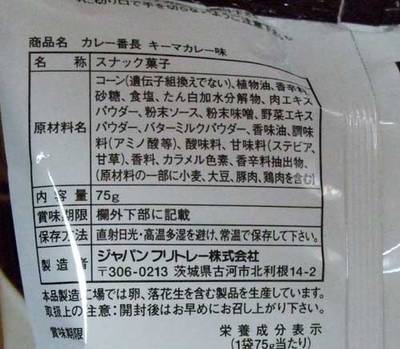 に切り口で手を切らな
商品名 カレー番長 キーマカレー味
名称 スナック菓子
原材料名 コーン(遺伝子組換えでない)、植物油、香辛料
砂糖、食塩、たん白加水分解物、肉エキス
パウダー、粉末ソース、粉末味噌、野菜エキス
パウダー、バターミルクパウダー、香味油、調味
料(アミノ酸等)、酸味料、甘味料(ステビア、
甘草)、香料、カラメル色素、香辛料抽出物、
(原材料の一部に小麦、大豆、豚肉、鶏肉を含む)
内容量 75g
賞味期限 欄外下部に記載
保存方法 直射日光・高温多湿を避け、常温で保存して下さい。
製造者 ジャパン フリトレー株式会社
〒306-0213 茨城県古河市北利根14-2
本品製造工場では卵、落花生を含む製品を生産しています。
取扱上の注意:開封後はお早めにお召し上がり下さい。
賞味期限
栄養成分表示
(1袋75g当たり)